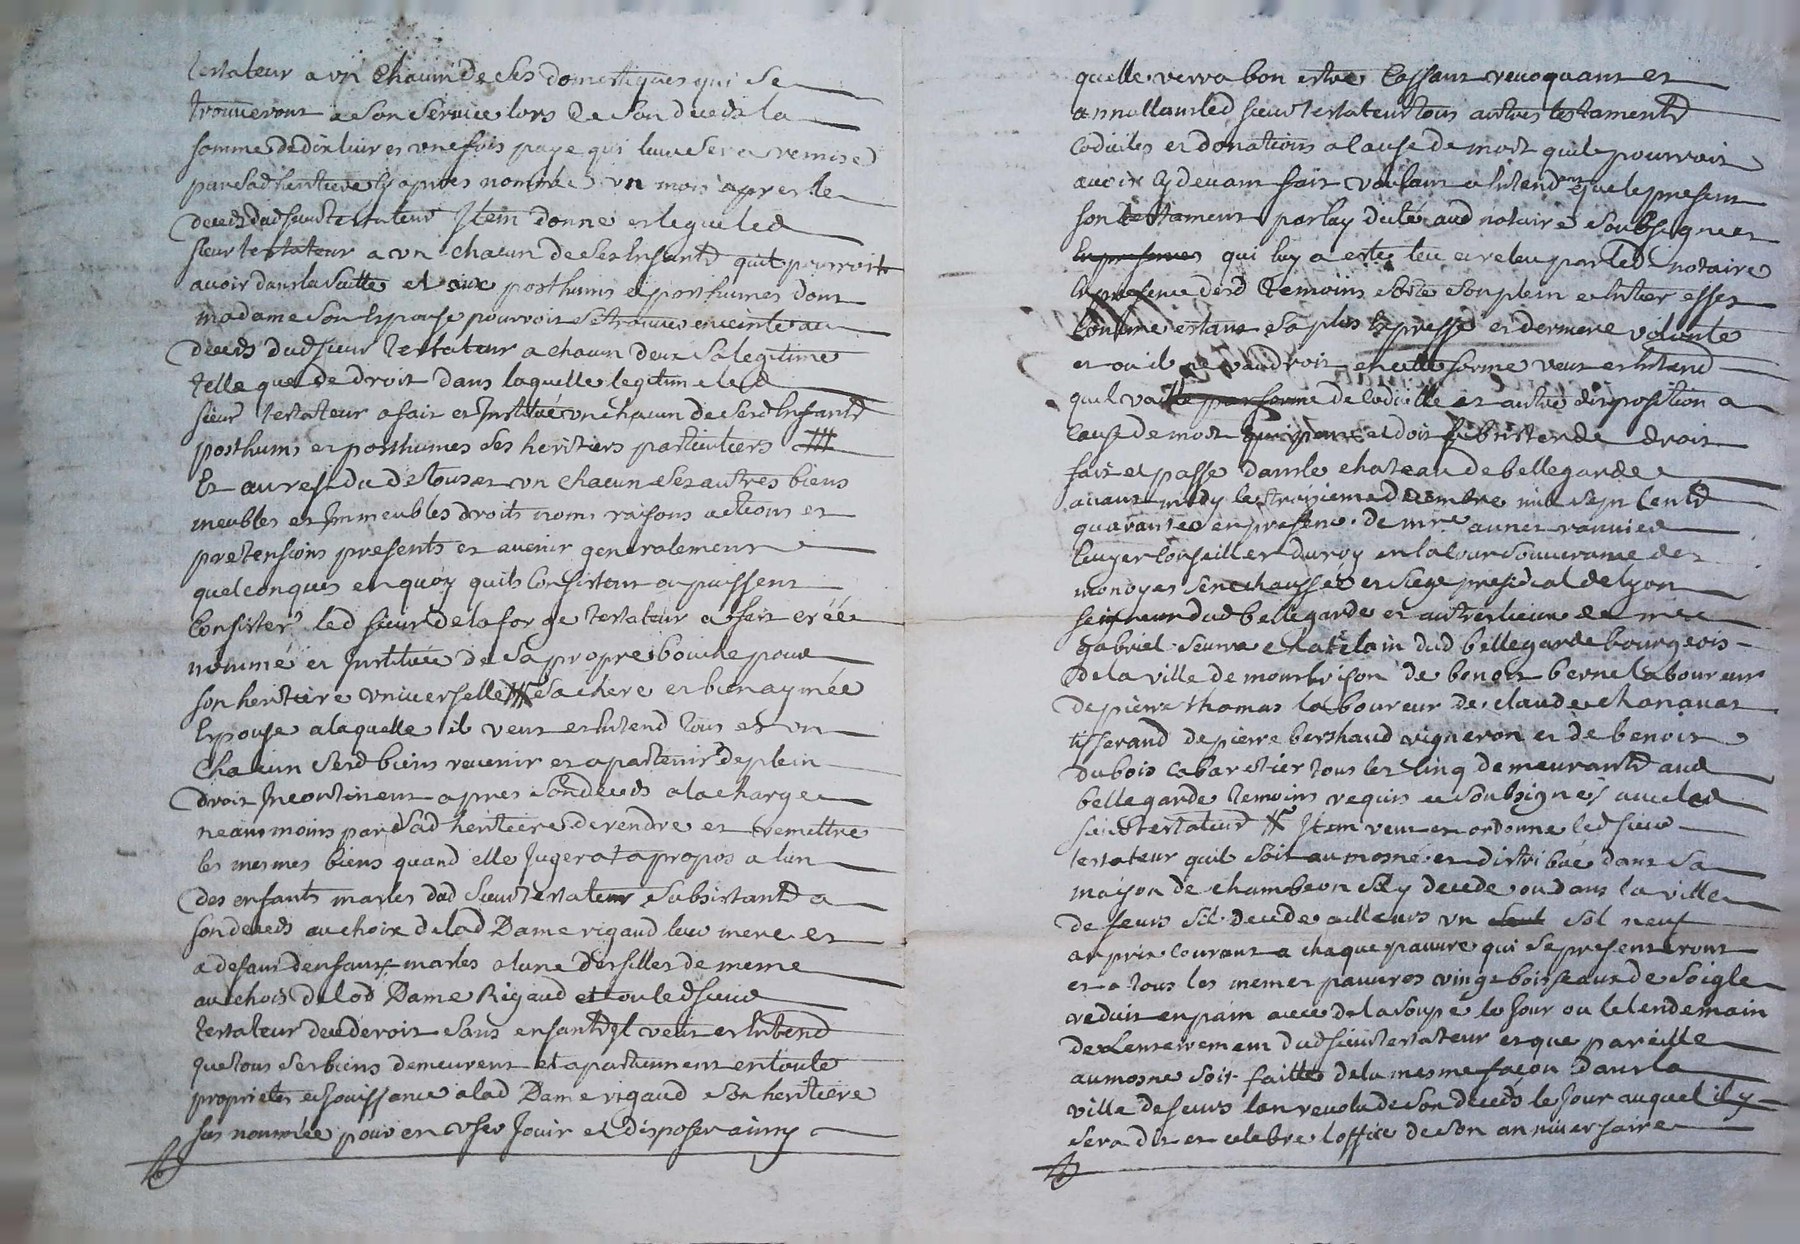 testateur a un chacun de ses domestiques qui se
trouveront a son service lors de son deceds la
somme de dix livres une fois paye qui leur sera remise
par sad heritiere cy apres nommée un mois apres le
deceds dud sieur testateur Item donne et legue led
sieur testateur a un chacun de ses enfants quil pourroit
avoir dans la suitte et aux posthums et posthumes dont
madame son Espouse pourroit se trouver enceinte au
deceds dud sieur testateur a chacun deux sa legitime
telle que de droit dans laquelle legitime led
sieur testateur a fait et Institué un chacun de sesd Enfants
posthums et posthumes ses heritiers particuliers
Et au residu de tous et un chacun ses autres biens
meubles et Immeubles droits noms raisons actions et
pretensions presents et avenir generalement
quelconques en quoy quils Consistent ou puissent
Consister led sieur de la forge testateur a fait créée
nommé et Instituée de sa propre bouche pour
son heritiere universelle sa chere et bien aymée
Espouse a laquelle il veut et entend tous et un
Chacun sesd biens revenir et apartenir de plein
droit Incontinent apres son deceds a la charge
neammoins par sad heritiere de rendre et remettre
les mesmes biens quand elle Jugera a propos a lun
des enfants masles dud sieur testateur subsistants a
son deceds au choix de lad Dame rigaud leur mere et
a defaut denfants masles a lune des filles de meme
au choix de lad Dame Rigaud et ou led sieur
testateur decederoit sans enfants Il veut et entend
que tous ses biens demeurent et apartiennent en toute
proprieté et Jouissance a lad Dame rigaud son heritiere
sus nommée pour en user Jouir et disposer ainsy
quelle verra bon estre Cassant revoquant et
annullant led sieur testateur tous autres testaments
Codiciles et donations a cause de mort quil pourroit
avoir cy devant fait voulant et entendant que le present
son testament par luy dicté aud notaire soubsigné et
qui luy a esté leu et releu par led notaire
En presence desd temoins sorte son plein et entier effet
Comme estant sa plus Expresse et derniere volonté
et ou il ne vaudroit en cette forme veut et entend
quil vaille par forme de codicille et autre disposition a
cause de mort et doit subsister de droit
fait et passé dans le chateau de bellegarde
avant midy le troisieme decembre mil sept Cents
quarante en presence de mre aunet rannier
Ecuyer Conseiller du roy en la Cour Souveraine des
monoyes senechaussée et siege presidial de lyon
seigneur dud bellegarde et autres lieux de mre
gabriel seurre chatelain dud bellegarde bourgeois
de la ville de montbrison de benoit berne laboureur
de pierre thomas laboureur de claude chanavat
tisserand de pierre berthaud vigneron et de benoit
dubois cabaretier tous les cinq demeurants aud
bellegarde temoins requis et soubsignés avec led
sieur testateur Item veut et ordonne led sieur
testateur quil soit aumosné et distribué dans sa
maison de chambeon sil y decede ou dans la ville
de feurs sil decede ailleurs un sol neuf
au prix courant a chaque pauvre qui se presenteront
et a tous les memes pauvres vingt boisseaux de soigle
reduit en pain avec de la soupe le Jour ou le lendemain
de Lenterrement dud sieur testateur et que pareille
aumosne soit faitte de la mesme façon dans la
ville de feurs lan revolu de son deceds le Jour auquel il y
sera dit et celebré l office de son anniversaire